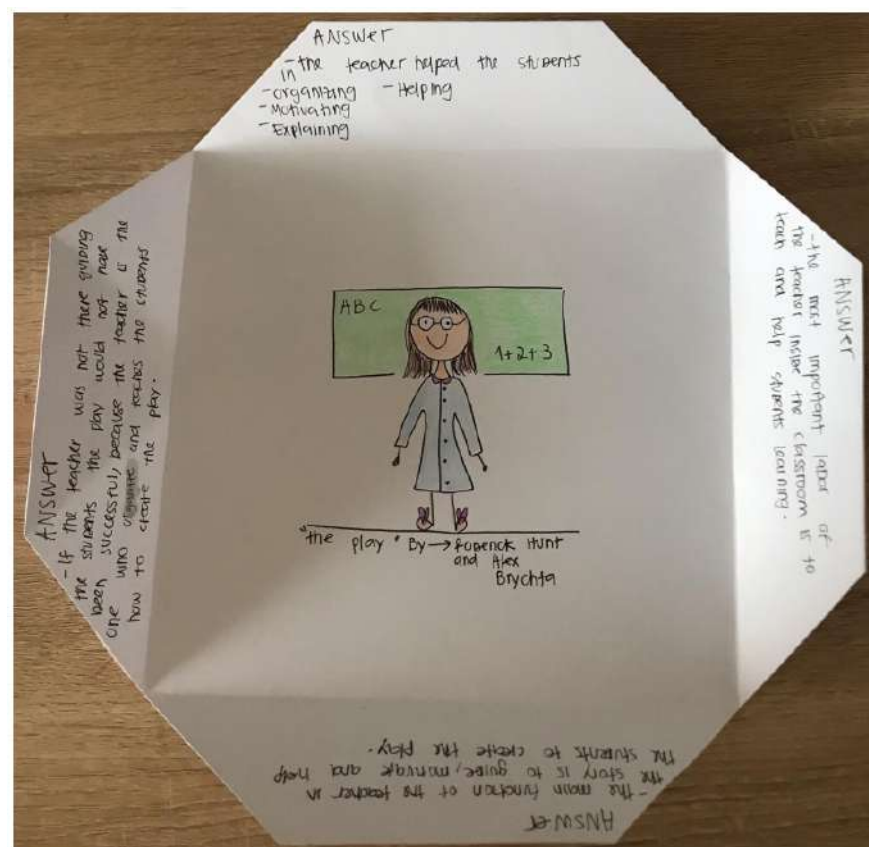 ANSWER
- the teacher helped the students
in
- organizing - Helping
- Motivating
- Explaining
ANSWER
- the most important labor of
the teacher inside the classroom is to
teach and help students learning.
ANSWER
- the main function of the teacher in
the story is to guide, motivate and help
the students to create the play.
ANSWER
- If the teacher was not there guiding
the students the play would not have
been successful, because the teacher is the
one who organize and teaches the students
how to create the play.
ABC
1+2+3
"the play" By → Roderick Hunt
and Alex
Brychta